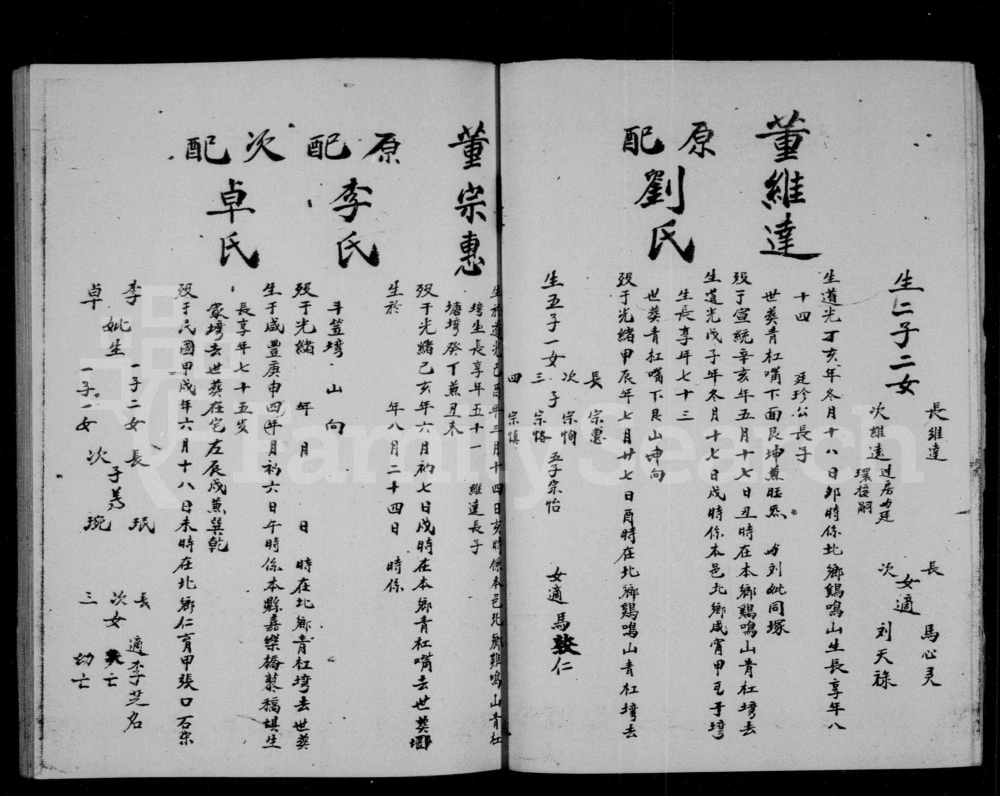 生仁子二女
長維達
次維遠過房與廷
環接嗣
長
女適
次
馬心灵
刘天祿
董維達
生道光丁亥年冬月十八日卯時係北鄉鷄鳴山生長享年八
十四 廷珍公長子
世葬青杠嘴下面艮坤兼旺炁 与刘妣同塚
歿于宣統辛亥年五月十七日丑時在本鄉鷄鳴山青杠塆去
原配劉氏
生道光戊子年冬月十七日戌時係本邑北鄉咸宵甲毛于塆
生長享年七十三
世葬青杠嘴下艮山坤向
歿于光緒甲辰年七月廿七日酉時在北鄉鷄鳴山青杠塆去
生五子一女
長 宗惠
次 宗恂
子 五子宗怡
三 宗恪
四 宗慎
女適馬敦仁
董宗惠
生於道光己酉年三月十四日亥時係本邑北鄉鷄鳴山青杠
塆生長享年五十一 維達長子
塘塆癸丁兼丑未
歿于光緒己亥年六月初七日戌時在本鄉青杠嘴去世葬堰
原配李氏
生於 年八月二十四日 時係
斗笠塆 山向
歿于光緒 年 月 日 時在北鄉青杠塆去世葬
次配卓氏
生于咸豐庚申四年月初六日午時係本縣嘉樂橋蔡福堪生
長享年七十五岁
家塆去世葬在宅左辰戌兼巽乾
歿于民國甲戌年六月十八日未時在北鄉仁育甲張口石宋
李
妣生
卓
一子二女
一子一女
長 珉
子義
次 琬
長 適李芝名
次女 亡
三 幼亡
FamilySearch